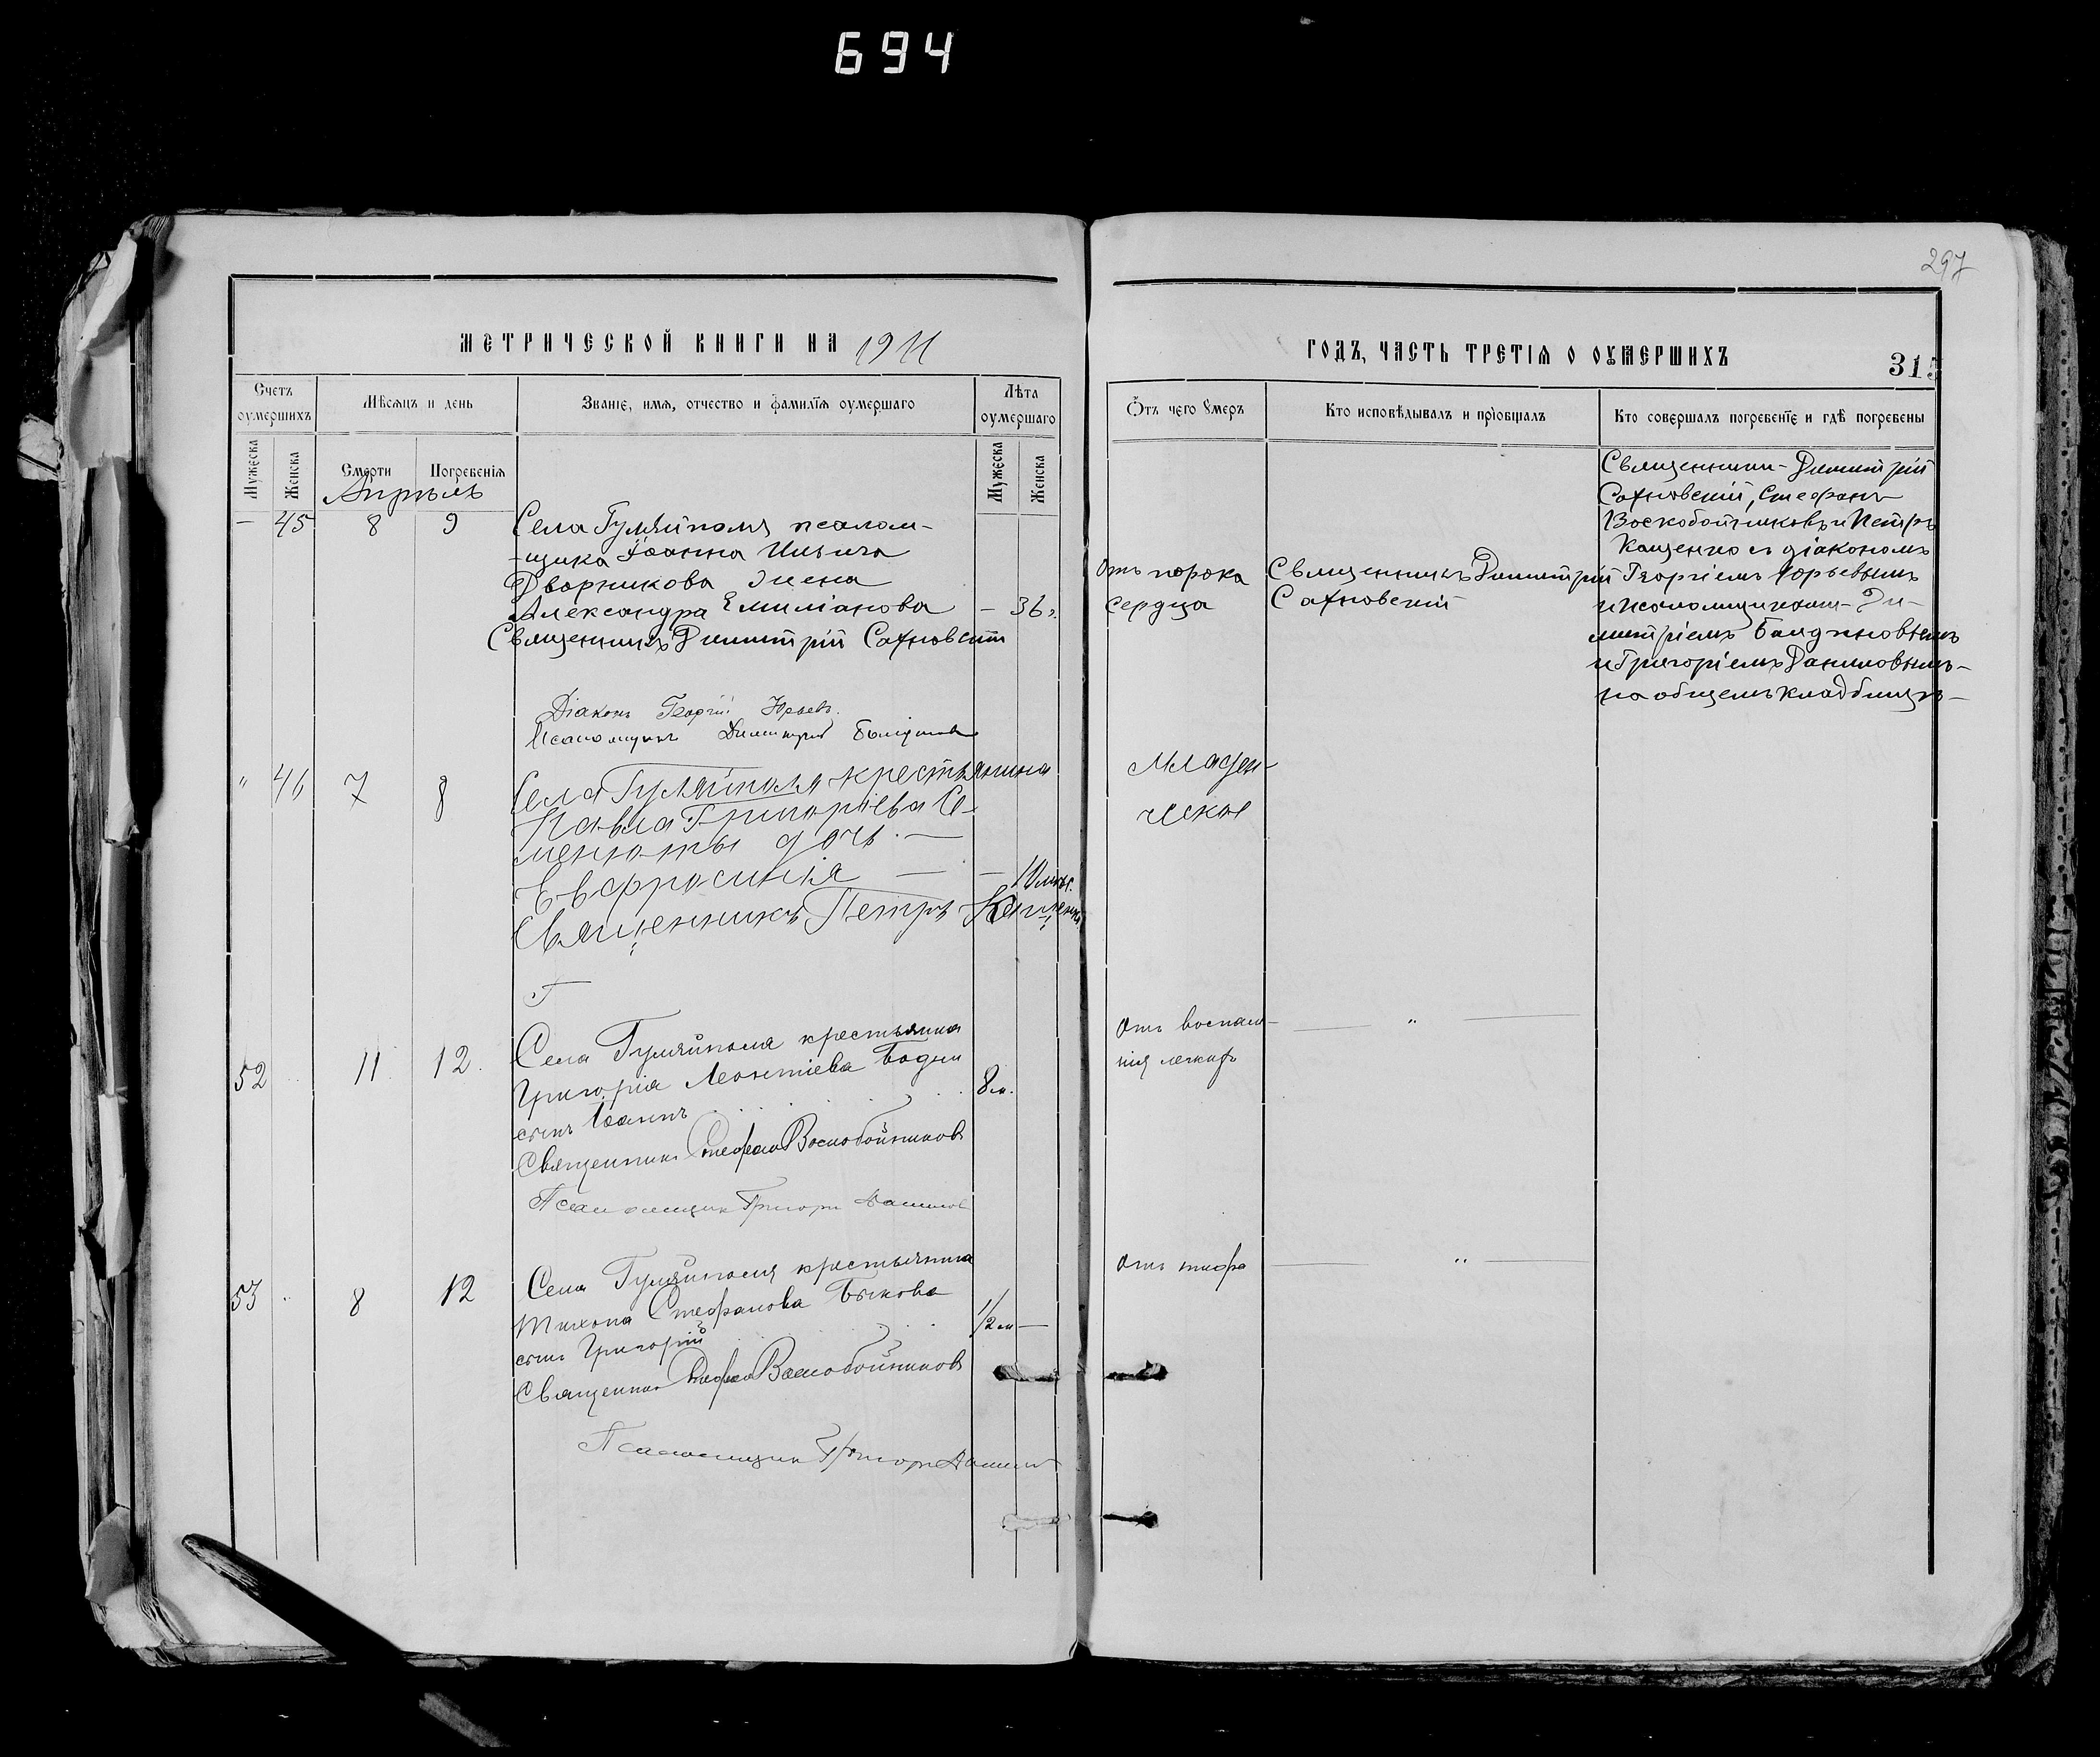 694
297
МЕТРИЧЕСКОЙ КНИГИ НА 1911
ГОДЪ, ЧАСТЬ ТРЕТІѦ О ОУМЕРШИХЪ
315
Счетъ оумершихъ
Мѣсѧцъ и день
Званіе, имѧ, отчество и фамилїѧ оумершаго
Лѣта оумершаго
Ѿтъ чего Умеръ
Кто исповѣдывалъ и прїобщалъ
Кто совершалъ погребенїе и гдѣ погребены
Мужеска
Женска
Смерти
Погребенїѧ
Мужеска
Женска
Апрѣль
— 45 8 9
Села Гуляйполя псалом-
щика Іоанна Ильича
Дворникова жена
Александра Емиліанова — 36 г.
Священникъ Димитрій Сахновскій
Діаконъ Георгій Юрьевъ.
Псаломщикъ Димитрій
Отъ порока
сердца
Священникъ Димитрій
Сахновскій
Священники Димитрій
Сахновскій, Стефанъ
Воскобойниковъ и Петръ
Кащенко съ діакономъ
Георгіемъ Юрьевымъ
и псаломщиками Ди-
митріемъ
и Григоріемъ Даниловымъ
на общемъ кладбищѣ
" 46 7 8
Села Гуляйполя крестьянина
Павла Григоріева Се-
менюты дочь. —
Евфросинія — — 10 мѣс.
Священникъ Петръ Кащенко
Младен-
ческое
Г
52 11 12.
Села Гуляйполя крестьянина
Григорія Леонтіева Бодни
сынъ Іоаннъ 8 м.
Священникъ Стефанъ Воскобойниковъ
Псаломщик Григорій Данилов
Отъ воспале-
нія легкихъ
— " —
53 8 12
Села Гуляйполя крестьянина
Тихона Стефанова Быкова
сынъ Григорій 1/2 м —
Священник Стефан Воскобойниковъ
Псаломщик Григорій Данилов
Отъ тифа
— " —